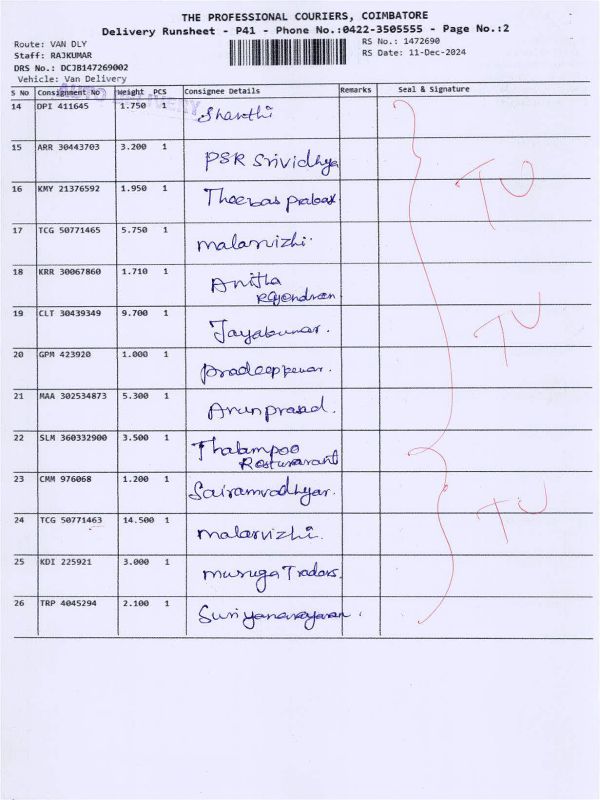 THE PROFESSIONAL COURIERS, COIMBATORE
Delivery Runsheet - P41 - Phone No.:0422-3505555 - Page No.:2
Route: VAN DLY
Staff: RAJKUMAR
DRS No.: DCJB147269002
Vehicle: Van Delivery
RS No.: 1472690
RS Date: 11-Dec-2024
AUTO DELIVERY
S No Consignment No Weight PCS Consignee Details Remarks Seal & Signature
14 DPI 411645 1.750 1 Shanthi
15 ARR 30443703 3.200 1 PSR Srividhya
16 KMY 21376592 1.950 1 Theebas prabas
17 TCG 50771465 5.750 1 malarvizhi.
18 KRR 30067860 1.710 1 Anitha
Rajendran
19 CLT 30439349 9.700 1 Jayakumar.
20 GPM 423920 1.000 1 Pradeepkumar.
21 MAA 302534873 5.300 1 Arunprasad.
22 SLM 360332900 3.500 1 Thalampoo
Resturarant
23 CMM 976068 1.200 1 Sairamvadhyar.
24 TCG 50771463 14.500 1 malarvizhi.
25 KDI 225921 3.000 1 muruga Tradars.
26 TRP 4045294 2.100 1 Suriyanarayanan.